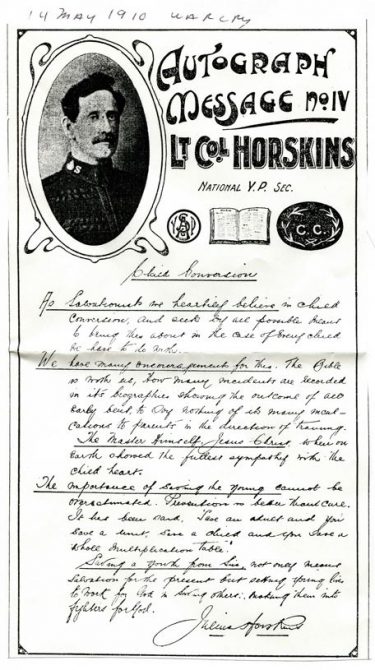 14 MAY 1910 WARCRY
AUTOGRAPH
MESSAGE No IV
LT COL HORSKINS
NATIONAL Y.P. SEC.
S
C.C.
Child Conversion
As Salvationists we heartily believe in child
conversion, and seek by all possible means
to bring this about in the case of every child
we have to do with.
We have many encouragements for this. The Bible
is with us, How many incidents are recorded
in its biographies showing the outcome of an
early bent, to say nothing of its many
to parents in the direction of training.
The Master Himself, Jesus Christ, when on
Earth showed the fullest sympathy with the
child heart.
The importance of Saving the Young cannot be
overestimated. Prevention is better than cure.
It has been said, "Save an adult and you
save a unit, save a child and you save a
whole multiplication table".
Saving a Youth from Sin, not only means
Salvation for the present but setting young lives
to work for God in saving others: making them into
fighters for God.
Julius Horskins